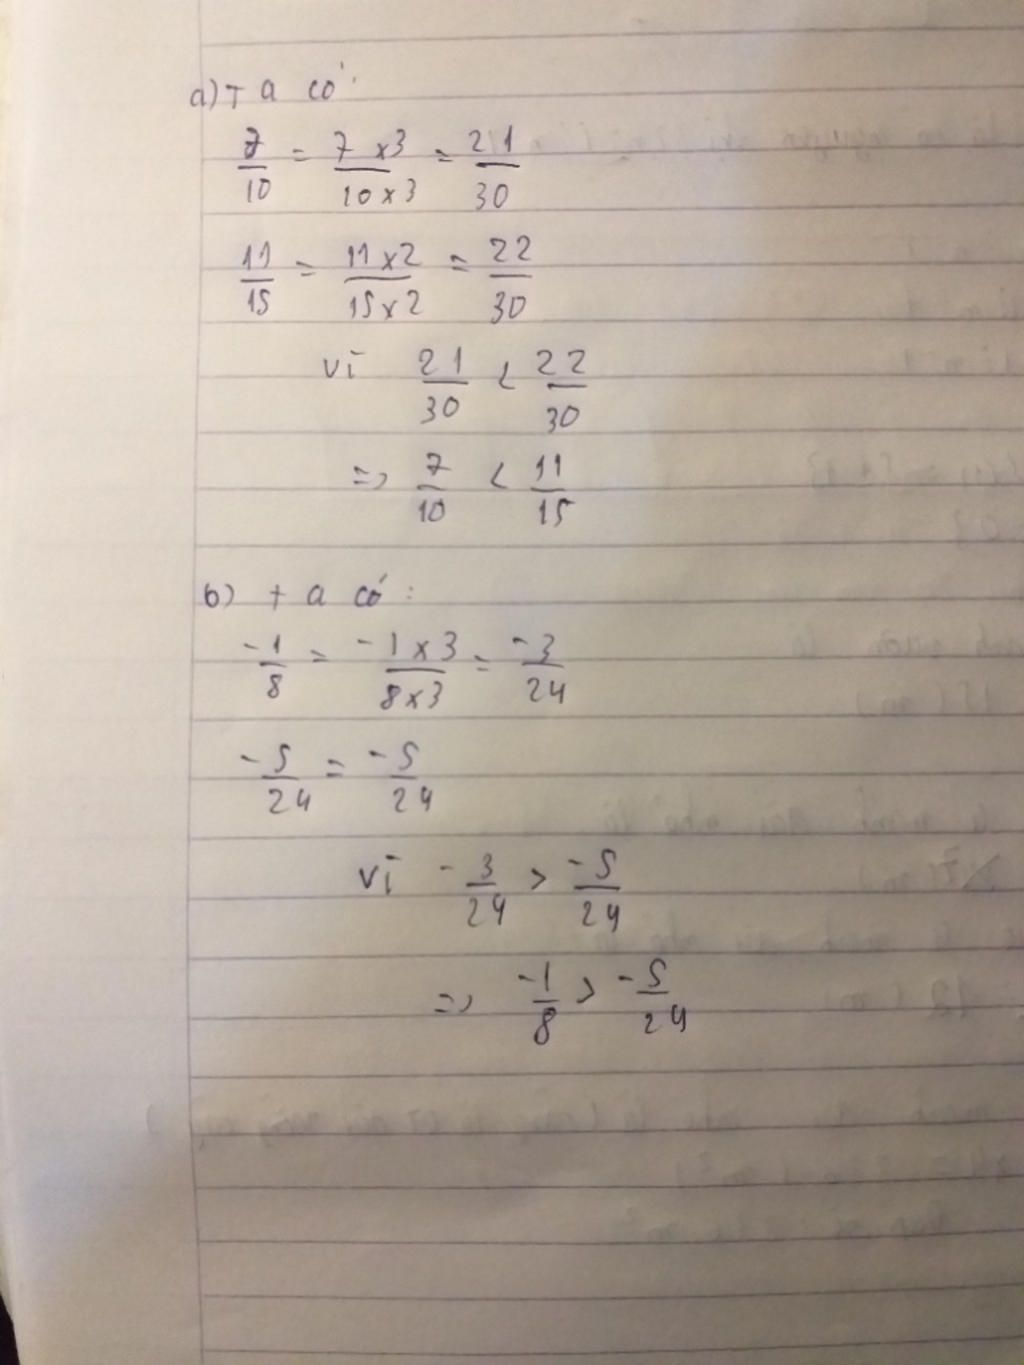 a) Ta có:
7/10 = 7 x 3/10 x 3 = 21/30
11/15 = 11 x 2/15 x 2 = 22/30
vì 21/30 < 22/30
=> 7/10 < 11/15
b) Ta có:
-1/8 = -1 x 3/8 x 3 = -3/24
-5/24 = -5/24
vì -3/24 > -5/24
=> -1/8 > -5/24